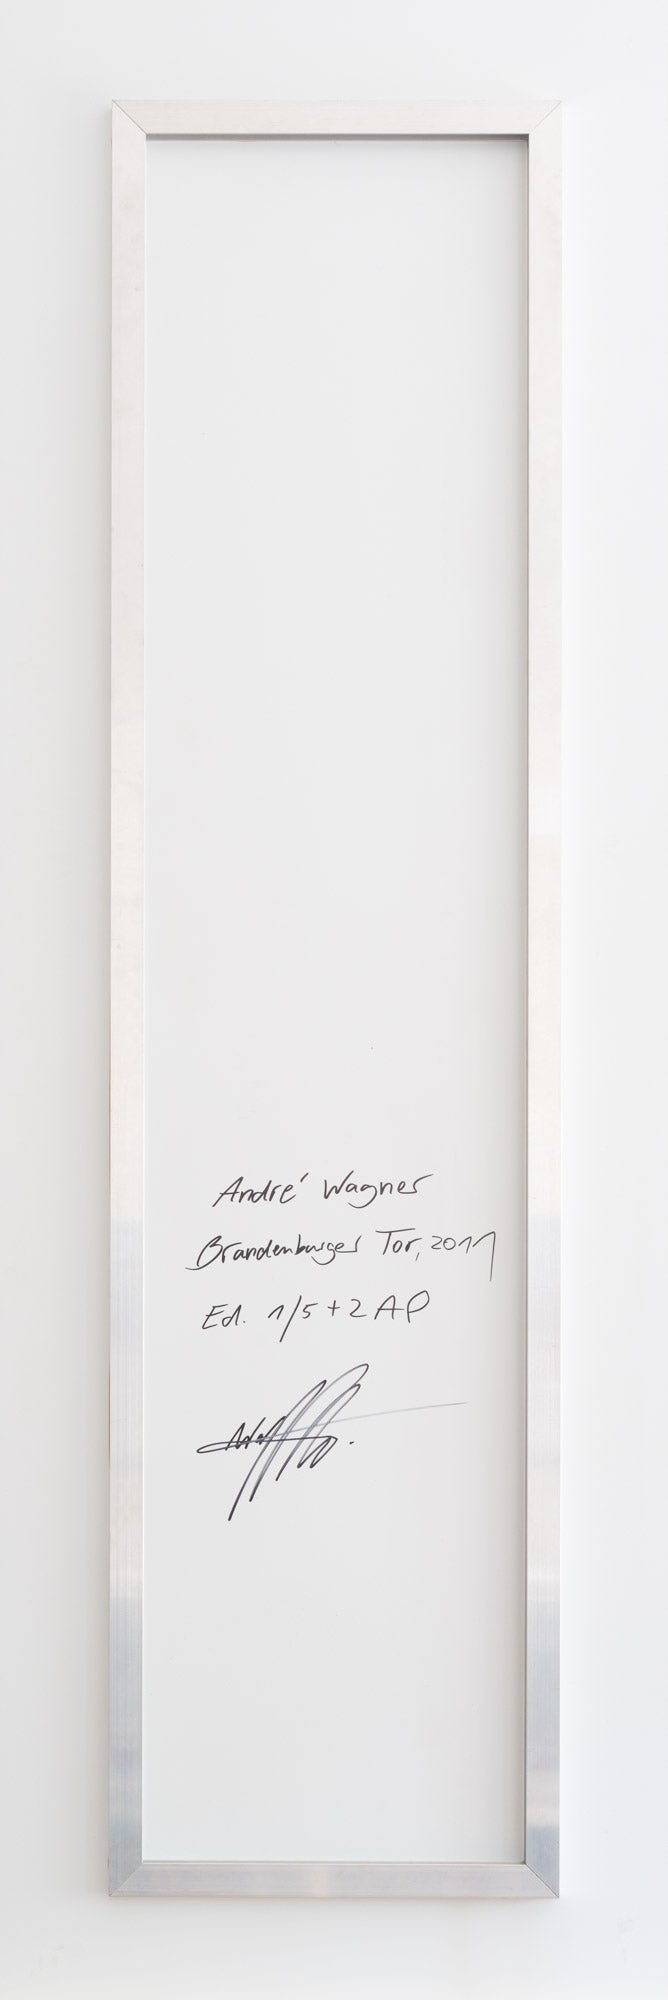 André Wagner
Brandenburger Tor, 2011
Ed. 1/5 + 2 AP